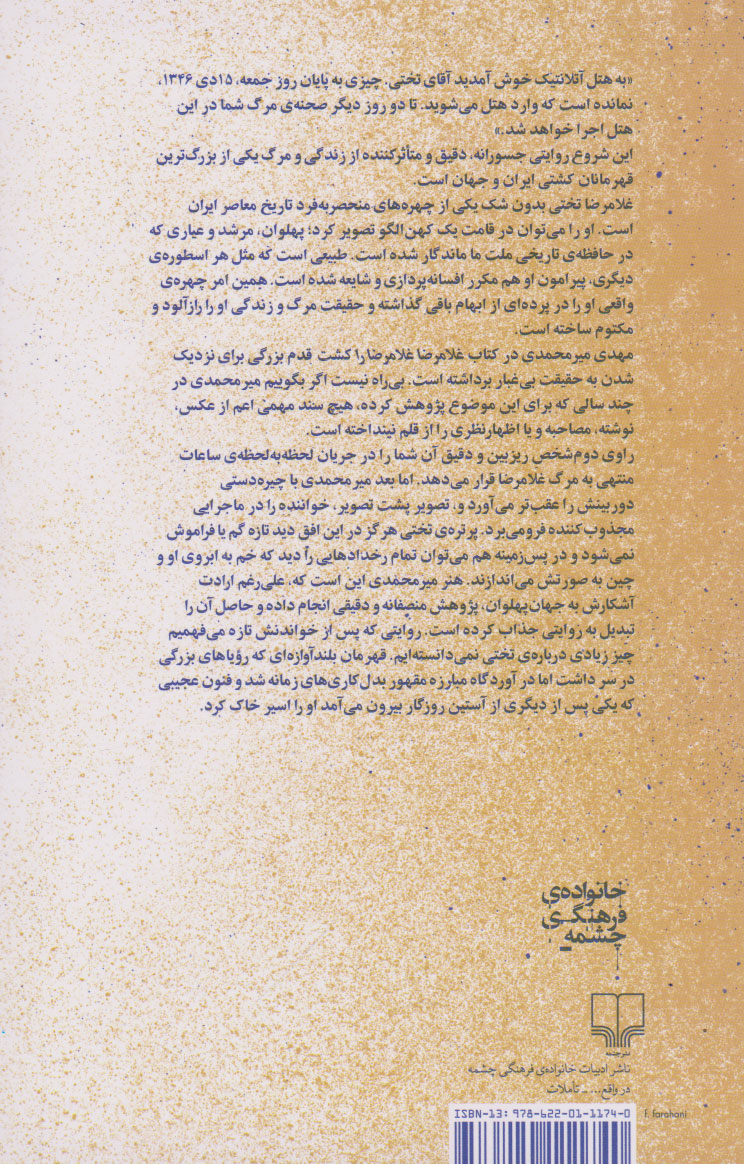 «به هتل آتلانتیک خوش آمدید آقای تختی. چیزی به پایان روز جمعه، ۱۵دی ۱۳۴۶،
نمانده است که وارد هتل می‌شوید. تا دو روز دیگر صحنه‌ی مرگ شما در این
هتل اجرا خواهد شد.»
این شروع روایتی جسورانه، دقیق و متأثرکننده از زندگی و مرگ یکی از بزرگ‌ترین
قهرمانان کشتی ایران و جهان است.
غلامرضا تختی بدون شک یکی از چهره‌های منحصربه‌فرد تاریخ معاصر ایران
است. او را می‌توان در قامت یک کهن‌الگو تصویر کرد؛ پهلوان، مرشد و عیاری که
در حافظه‌ی تاریخی ملت ما ماندگار شده است. طبیعی است که مثل هر اسطوره‌ی
دیگری، پیرامون او هم مکرر افسانه‌پردازی و شایعه شده است. همین امر چهره‌ی
واقعی او را در پرده‌ای از ابهام باقی گذاشته و حقیقت مرگ و زندگی او را رازآلود و
مکتوم ساخته است.
مهدی میرمحمدی در کتاب غلامرضا غلامرضا را کشت قدم بزرگی برای نزدیک
شدن به حقیقت بی‌غبار برداشته است. بی‌راه نیست اگر بگوییم میرمحمدی در
چند سالی که برای این موضوع پژوهش کرده، هیچ سند مهمی اعم از عکس،
نوشته، مصاحبه و یا اظهارنظری را از قلم نینداخته است.
راوی دوم‌شخص ریزبین و دقیق آن شما را در جریان لحظه‌به‌لحظه‌ی ساعات
منتهی به مرگ غلامرضا قرار می‌دهد. اما بعد میرمحمدی با چیره‌دستی
دوربینش را عقب‌تر می‌آورد و، تصویر پشت تصویر، خواننده را در ماجرایی
مجذوب‌کننده فرومی‌برد. پرتره‌ی تختی هرگز در این افق دید تازه گم یا فراموش
نمی‌شود و در پس‌زمینه هم می‌توان تمام رخدادهایی را دید که خم به ابروی او و
چین به صورتش می‌اندازند. هنر میرمحمدی این است که، علی‌رغم ارادت
آشکارش به جهان‌پهلوان، پژوهش منصفانه و دقیقی انجام داده و حاصل آن را
تبدیل به روایتی جذاب کرده است. روایتی که پس از خواندنش تازه می‌فهمیم
چیز زیادی درباره‌ی تختی نمی‌دانسته‌ایم. قهرمان بلندآوازه‌ای که رؤیاهای بزرگی
در سر داشت اما در آوردگاه مبارزه مقهور بدل‌کاری‌های زمانه شد و فنون عجیبی
که یکی پس از دیگری از آستین روزگار بیرون می‌آمد او را اسیر خاک کرد.
خانواده‌ی
فرهنگی
چشمه
نشرچشمه
ناشر ادبیات خانواده‌ی فرهنگی چشمه
در واقع... ــ تأملات
ISBN-13: 978-622-01-1174-0
f. farahani